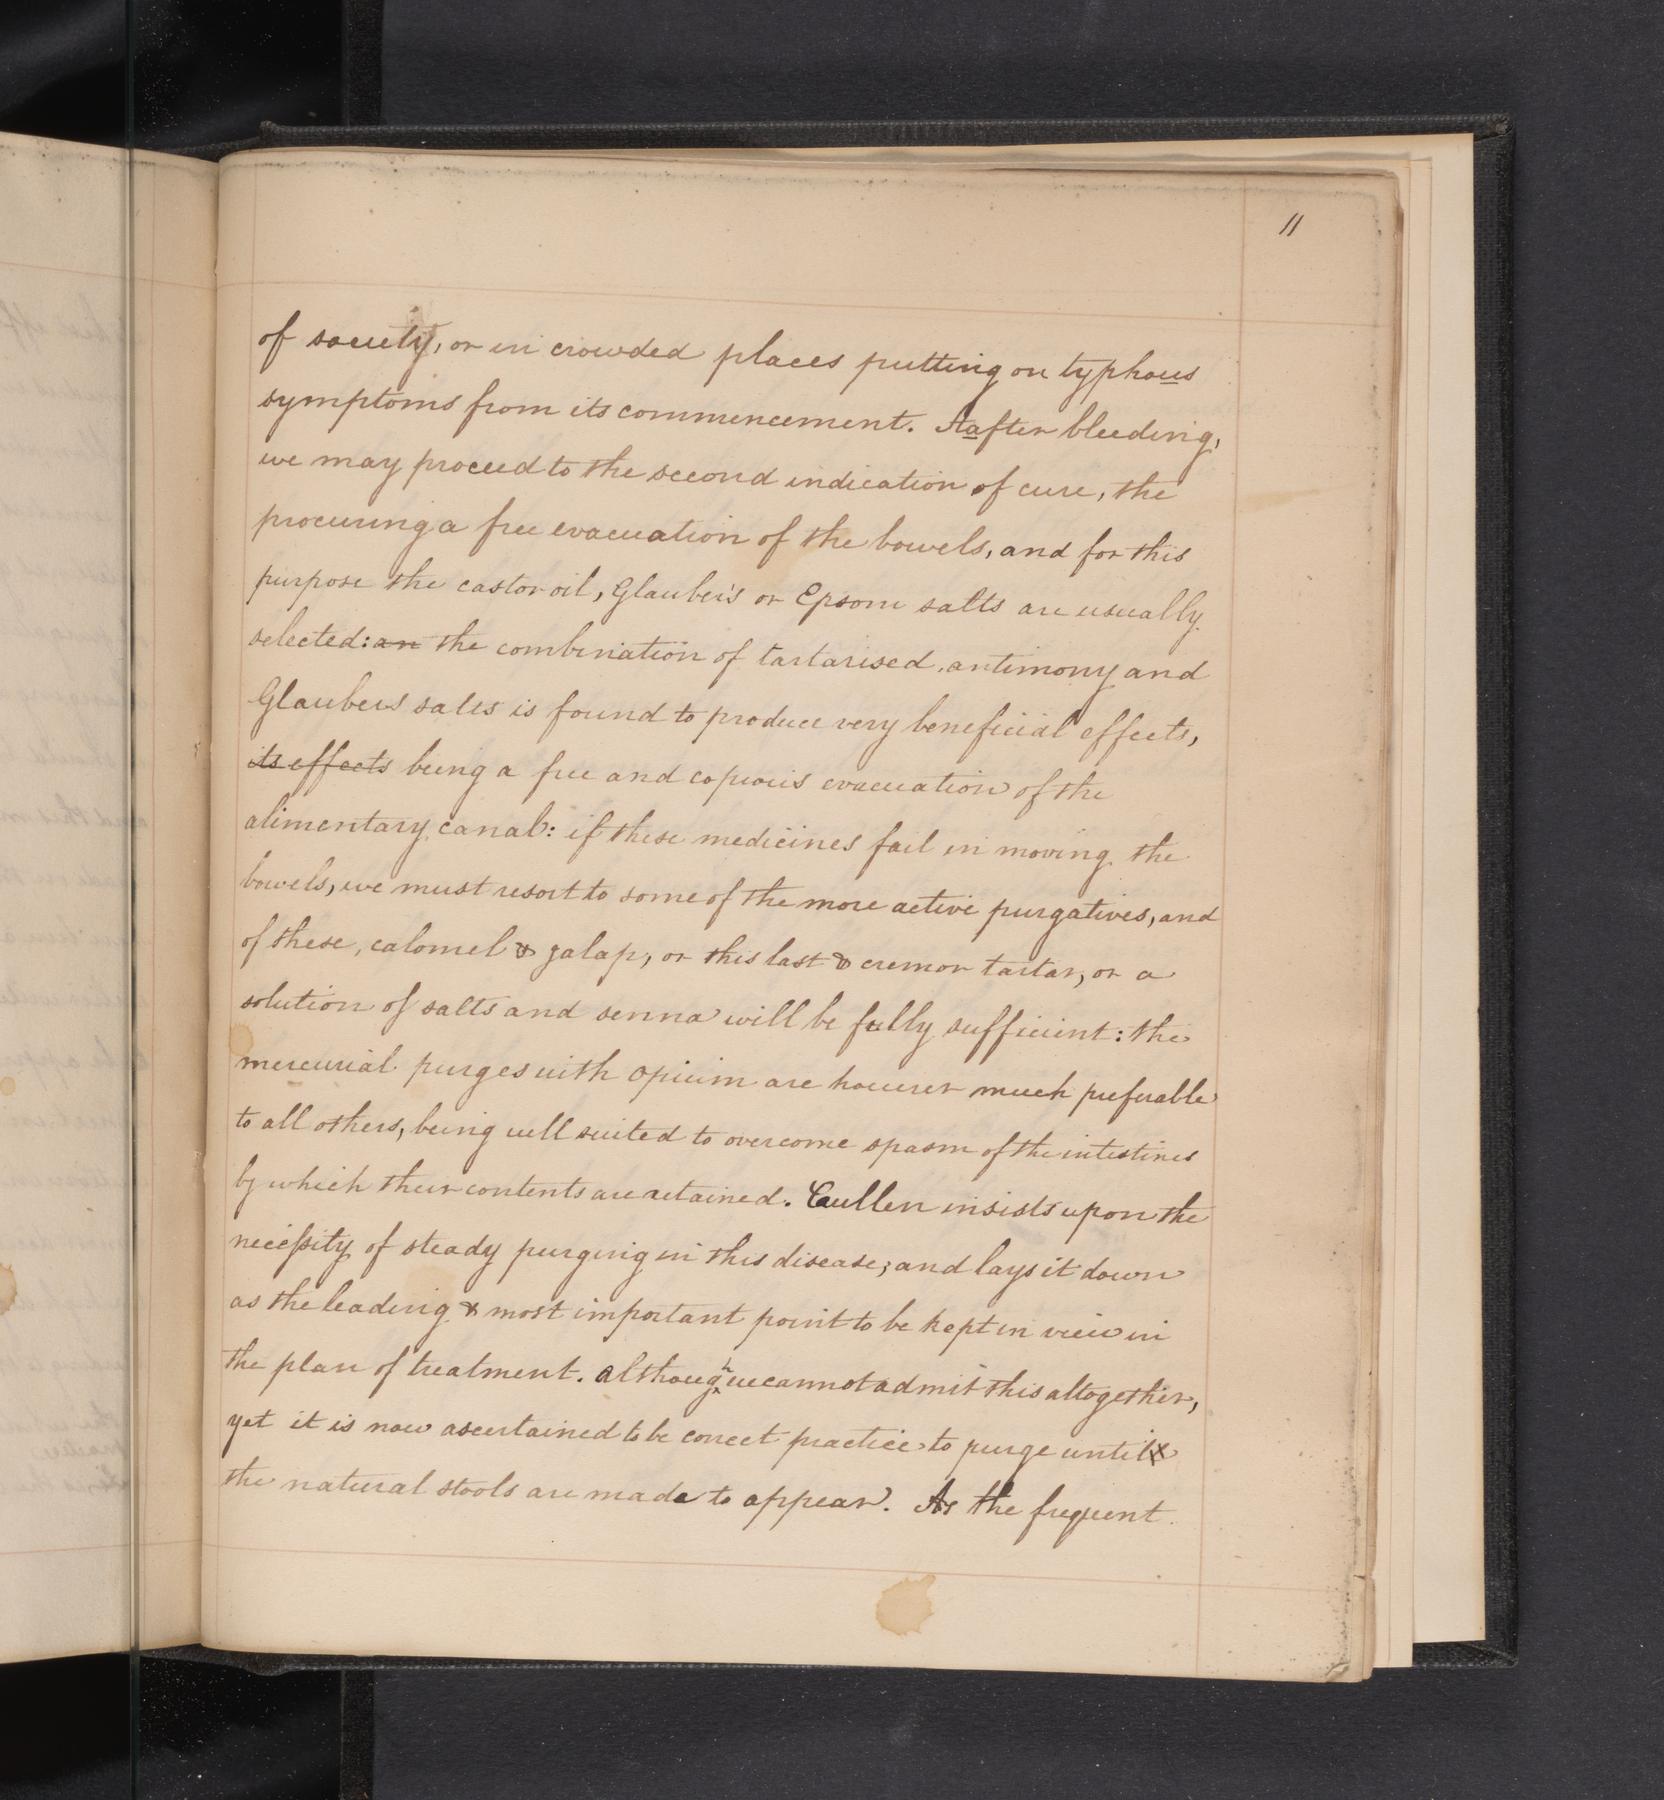 11
of society, or in crowded places putting on typhous
symptoms from its commencement. Aafter bleeding,
we may proceed to the second indication of cure, the
procuring a free evacuation of the bowels, and for this
purpose the castor oil, Glauber's or Epsom salts are usually
selected: an the combination of tartarised antimony and
Glaubers salts is found to produce very beneficial effects,
its effects being a free and copious evacuation of the
alimentary canal: if these medicines fail in moving the
bowels, we must resort to some of the more active purgatives, and
of these, calomel & jalap, or this last & cremor tartar, or a
solution of salts and senna will be fully sufficient: the
mercurial purges with opium are however much preferable
to all others, being well suited to overcome spasm of the intestines
by which their contents are retained. Cullen insists upon the
necessity of steady purging in this disease; and lays it down
as the leading & most important point to be kept in view in
the plan of treatment. although we cannot admit this altogether,
yet it is now ascertained to be correct practice to purge until
the natural stools are made to appear. As the frequent